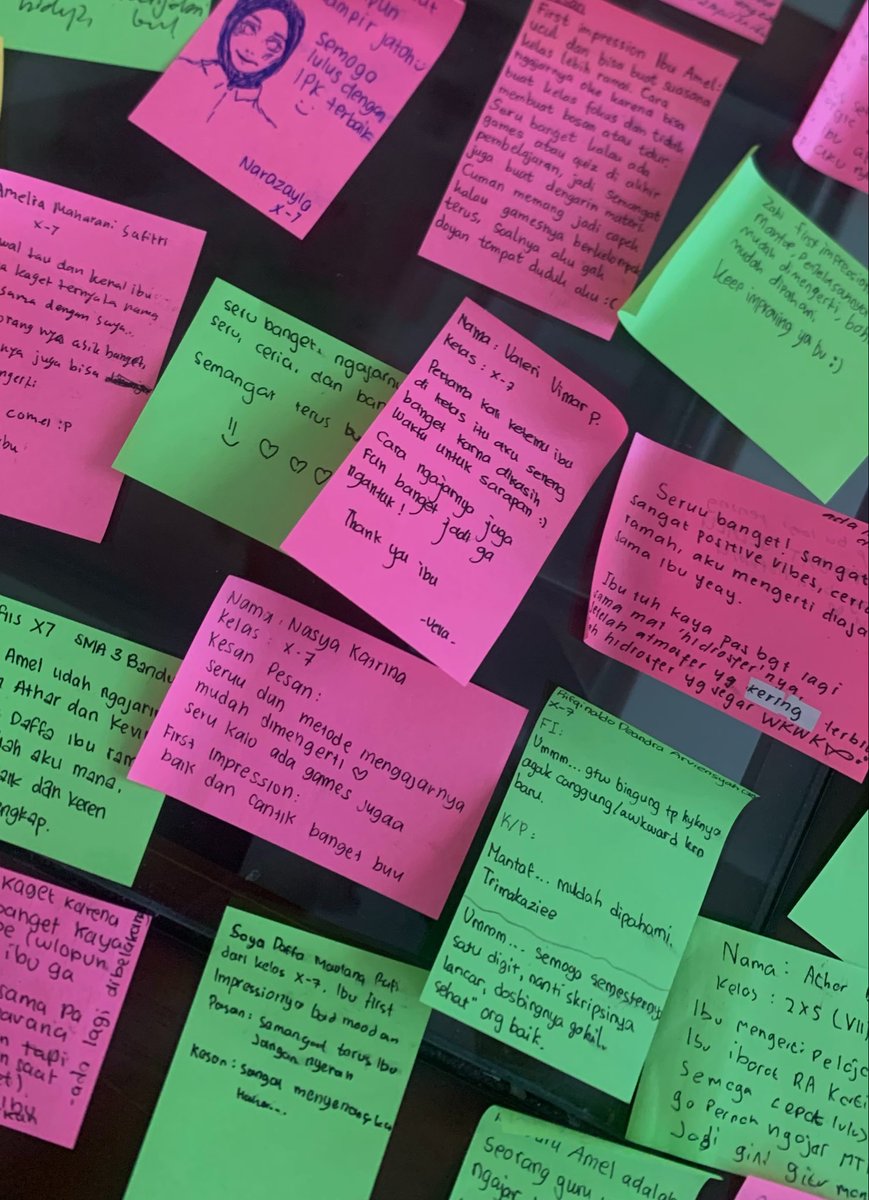 jatoh
semoga
lulus dengan
IPK terbaik
Narazayla
X-7
First impression Ibu Amel:
ucul dan bisa buat suasana
kelas lebih ramai. Cara
ngajarnya oke karena bisa
buat kelas fokus dan tidak
membuat bosan atau tidur.
Seru banget kalau ada
games atau quiz di akhir
pembelajaran, jadi semangat
juga buat dengarin materi.
Cuman memang jadi capek
kalau gamesnya berkelompok
terus, soalnya aku gak
doyan tempat duduk aku :C
Zaki first impression
mudah dimengerti, bah
mudah dipahami.
keep improving ya bu :)
Amelia Maharani Safitri
X-7
wal tau dan kenal ibu
a kaget ternyata nama
sama dengan saya..
orang nya asik banget,
nya juga bisa
ngerti
comel :P
ibu
seru banget, ngajarnu
seru, ceria, dan ban
semangat terus bu
!!
Nama: Valeri Vimar P.
Kelas: X-7
Pertama kali ketemu ibu
di kelas itu aku seneng
banget karna dikasih
waktu untuk sarapan :)
Cara ngajarnya juga
fun banget jadi ga
ngantuk!
Thank you ibu
-Vera-
ada
Seruu banget! sangat
sangat positive vibes, ceria
ramah, aku mengerti diaja
sama Ibu yeay.
Ibu tuh kaya pas bgt lagi
sama mat 'hidrosfer'nya,
setelah atmosfer yg kering terbit
ah hidrosfer yg segar WKWK
X7 SMA 3 Bandu
Amel udah ngajarin
Athar dan Kevi
Daffa ibu ram
ah aku mana,
aik dan keren
engkap.
Nama: Nasya Katrina
Kelas: X-7
Kesan Pesan:
seruu dan metode mengajarnya
mudah dimengerti ♡
seru kalo ada games jugaa
First impression:
baik dan cantik banget buu
X-7
FI:
Ummm... gtw bingung tp kyknya
agak canggung/awkward krn
baru.
K/P:
Mantaf... mudah dipahami.
Trimakaziee
Ummm... semoga semesterny
satu digit, nanti skripsinya
lancar, dosbingnya gokil,
sehat", org baik.
kaget karena
banget kaya
pe (wlopun
ibu ga
sama Pa
tapi
saat
et).
Ibu
-ada lagi dibelakang
Saya Daffa Maulana Rafi
dari kelas X-7. Ibu first
impressionya bad mood an
Pesan: Samangat terus Ibu
Jangan nyerah
Kesan: Sangat menyenangka
Haha...
Nama: Athar
Kelas: 2x5 (VII)
Ibu mengerti pelaja
Ibu ibarat RA Karti
Semoga cepat lulus
ga pernah ngajar MT
Jadi gini gitu men
uru Amel adalah
seorang guru
ngajar